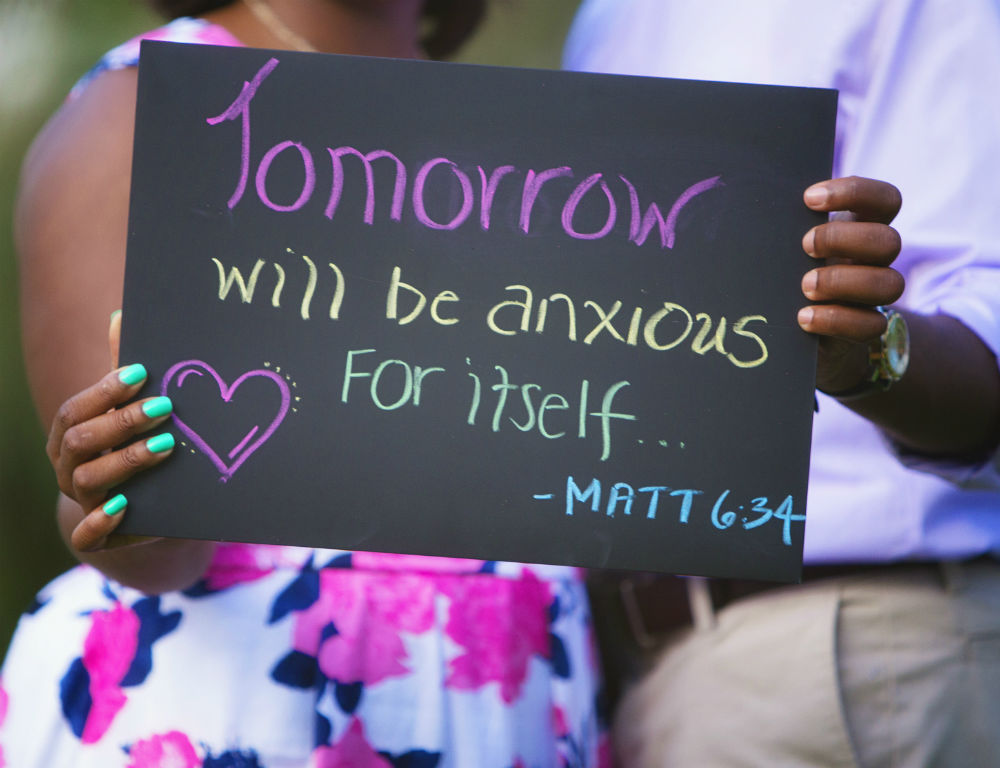 Tomorrow
will be anxious
For itself...
-MATT 6:34